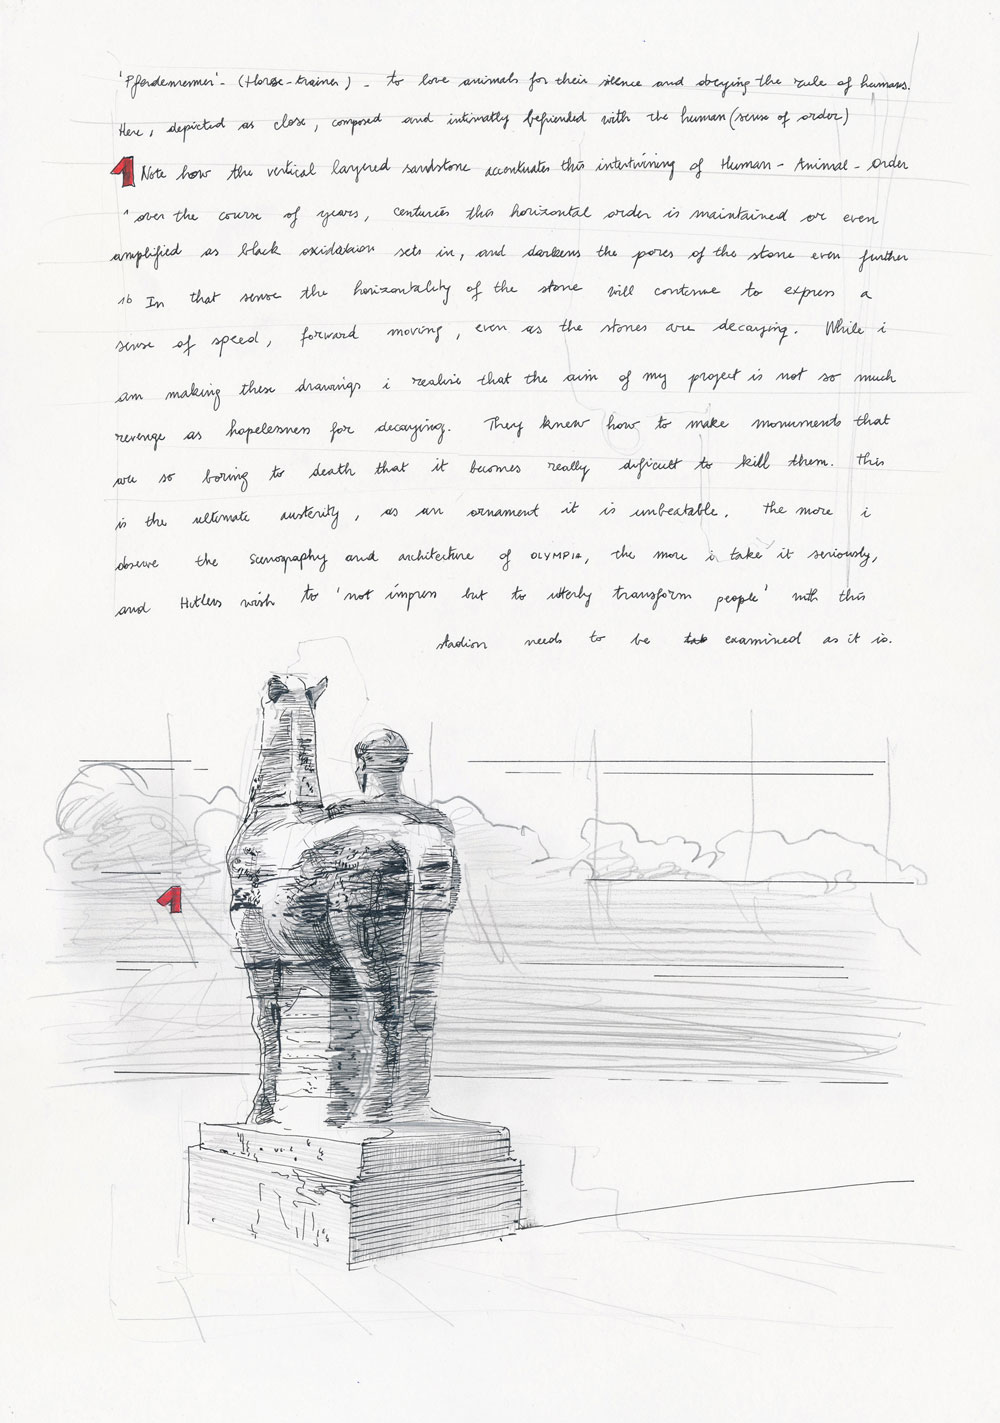 'Pferdemenner' - (Horse-trainer) - to love animals for their silence and obeying the rule of humans.
Here, depicted as close, composed and intimatly befriended with the human (sense of order)
1 Note how the vertical layered sandstone accentuates this intertwining of Human - Animal - Order
^ over the course of years, centuries this horizontal order is maintained or even
amplified as black oxidation sets in, and darkens the pores of the stone even further
1b In that sense the horizontality of the stone will continue to express a
sense of speed, forward moving, even as the stones are decaying. While i
am making these drawings i realise that the aim of my project is not so much
revenge as hopelessness for decaying. They knew how to make monuments that
are so boring to death that it becomes really dificult to kill them. This
is the ultimate austerity, as an ornament it is unbeatable. The more i
observe the scenography and architecture of OLYMPIA, the more i take it seriously,
and Hitlers wish to 'not impress but to utterly transform people' with this
stadion needs to be examined as it is.
1